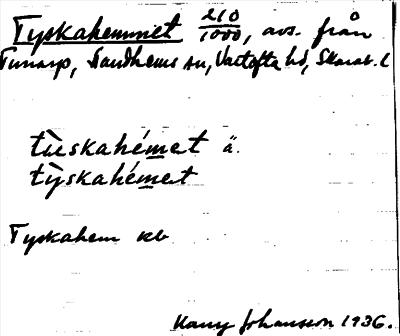 Tyskahemmet 210/1000, avs. från
Tunarp, Sandhems sn, Vartofta hd, Skarab. l
tùskahémet ä.
tỳskahémet
Tyskahem kb
Harry Johansson 1936.